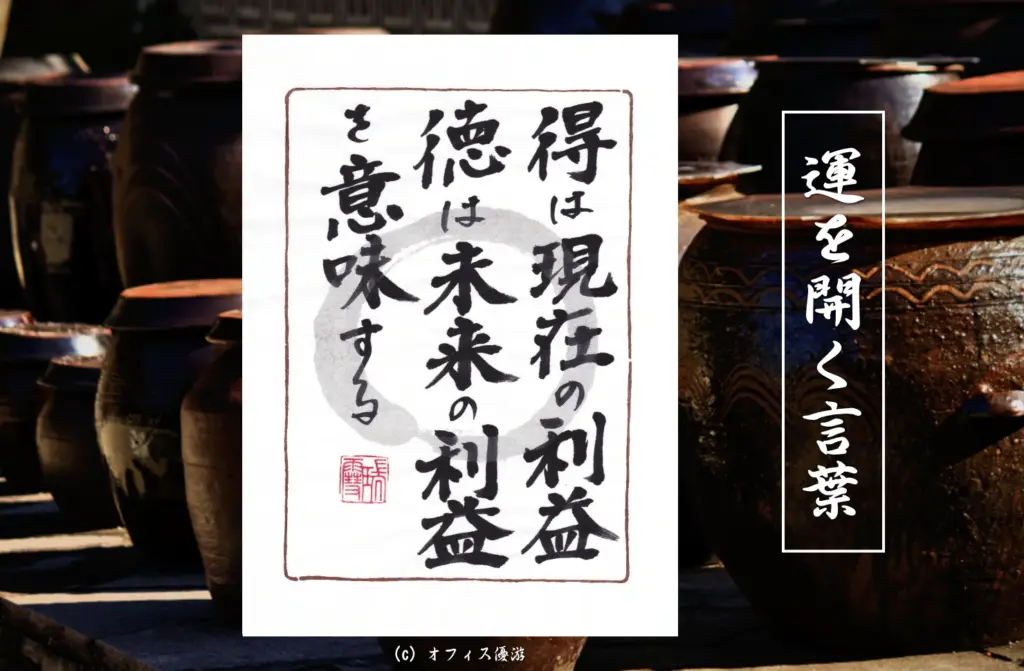 運を開く言葉
得は現在の利益
徳は未来の利益
を意味する
(c) オフィス優游